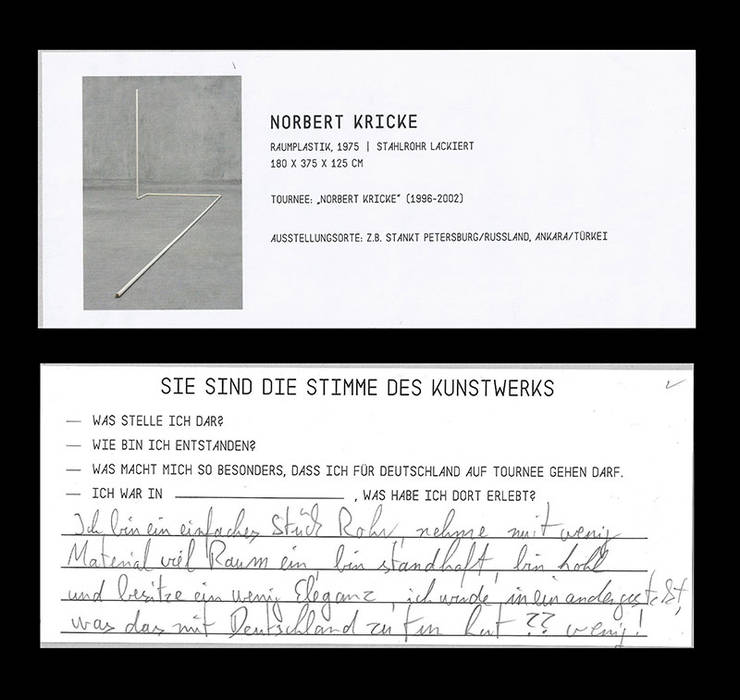 NORBERT KRICKE
RAUMPLASTIK, 1975 | STAHLROHR LACKIERT
180 X 375 X 125 CM
TOURNEE: „NORBERT KRICKE“ (1996-2002)
AUSSTELLUNGSORTE: Z.B. STANKT PETERSBURG/RUSSLAND, ANKARA/TÜRKEI
SIE SIND DIE STIMME DES KUNSTWERKS
— WAS STELLE ICH DAR?
— WIE BIN ICH ENTSTANDEN?
— WAS MACHT MICH SO BESONDERS, DASS ICH FÜR DEUTSCHLAND AUF TOURNEE GEHEN DARF.
— ICH WAR IN ____________________ , WAS HABE ICH DORT ERLEBT?
Ich bin ein einfaches Stück Rohr, nehme mit wenig
Material viel Raum ein, bin standhaft, bin hohl
und besitze ein wenig Eleganz, ich wurde ineinandergesteckt,
was das mit Deutschland zu tun hat ?? wenig!